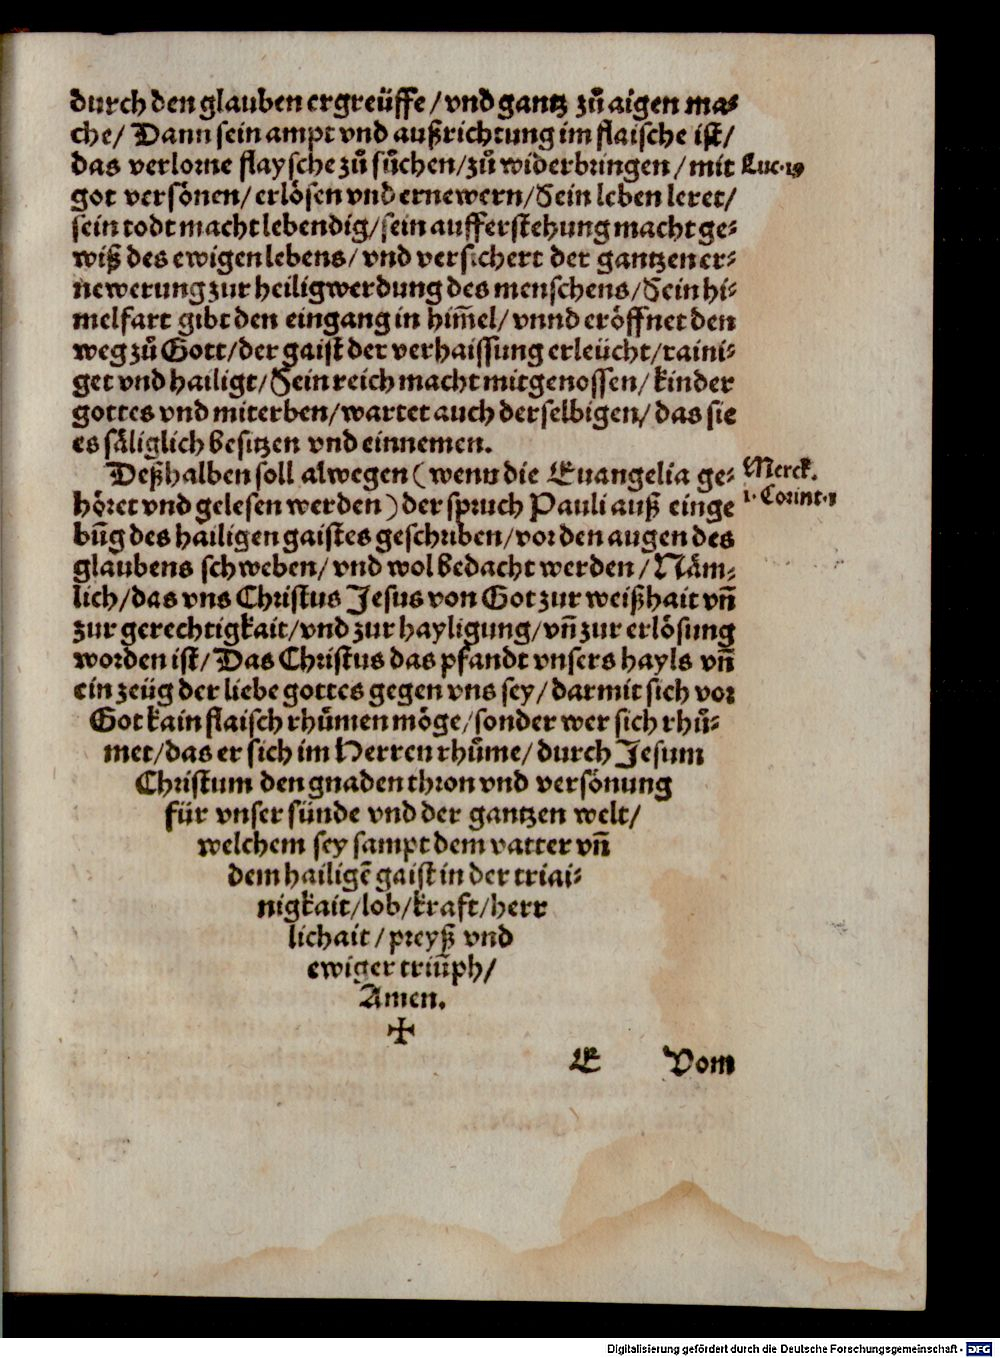 durch den glauben ergreüffe/ vnd gantz zů aigen ma⸗
che/ Dann sein ampt vnd außrichtung im flaische ist/
das verlorne flaysche zů sůchen/ zů widerbringen/ mit Luc. 19
got versönen/ erlösen vnd ernewern/ Sein leben leret/
sein todt macht lebendig/ sein aufferstehung macht ge⸗
wiß des ewigen lebens/ vnd versichert der gantzen er⸗
newerung zur heiligwerdung des menschens/ Sein hi⸗
melfart gibt den eingang in him̃el/ vnnd eröffnet den
weg zů Gott/ der gaist der verhaissung erleücht/ raini⸗
get vnd hailigt/ Sein reich macht mitgenossen/ kinder
gottes vnd miterben/ wartet auch derselbigen/ das sie
es säliglich besitzen vnd einnemen.
Deßhalben soll alwegen (wenn die Euangelia ge⸗ Merck.
höret vnd gelesen werden) der spruch Pauli auß einge 1. Corint. 1
bũg des hailigen gaistes geschriben/ vor den augen des
glaubens schweben/ vnd wol bedacht werden/ Näm⸗
lich/ das vns Christus Jesus von Got zur weißhait vñ
zur gerechtigkait/ vnd zur hayligung/ vñ zur erlösung
worden ist/ Das Christus das pfandt vnsers hayls vñ
ein zeüg der liebe gottes gegen vns sey/ darmit sich vor
Got kain flaisch rhůmen möge/ sonder wer sich rhů⸗
met/ das er sich im Herren rhůme/ durch Jesum
Christum den gnaden thron vnd versönung
für vnser sünde vnd der gantzen welt/
welchem sey sampt dem vatter vñ
dem hailigẽ gaist in der triai⸗
nigkait/ lob/ kraft/ herr
lichait/ preyß vnd
ewiger triũph/
Amen.
✠
E Vom
Digitalisierung gefördert durch die Deutsche Forschungsgemeinschaft - DFG